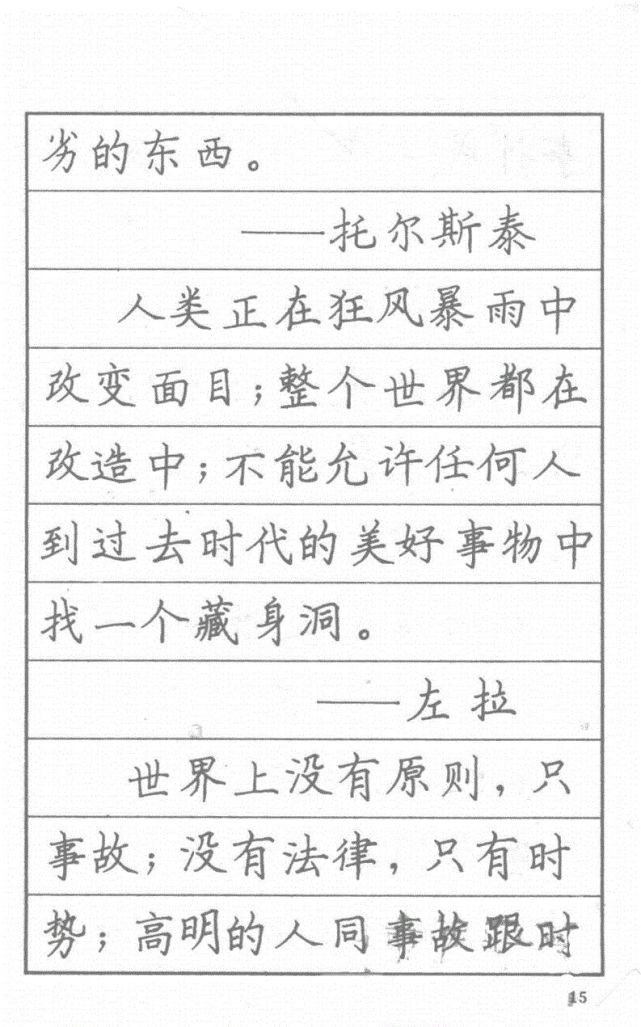 劣的东西。
——托尔斯泰
人类正在狂风暴雨中
改变面目；整个世界都在
改造中；不能允许任何人
到过去时代的美好事物中
找一个藏身洞。
——左拉
世界上没有原则，只
事故；没有法律，只有时
势；高明的人同事故跟时
15